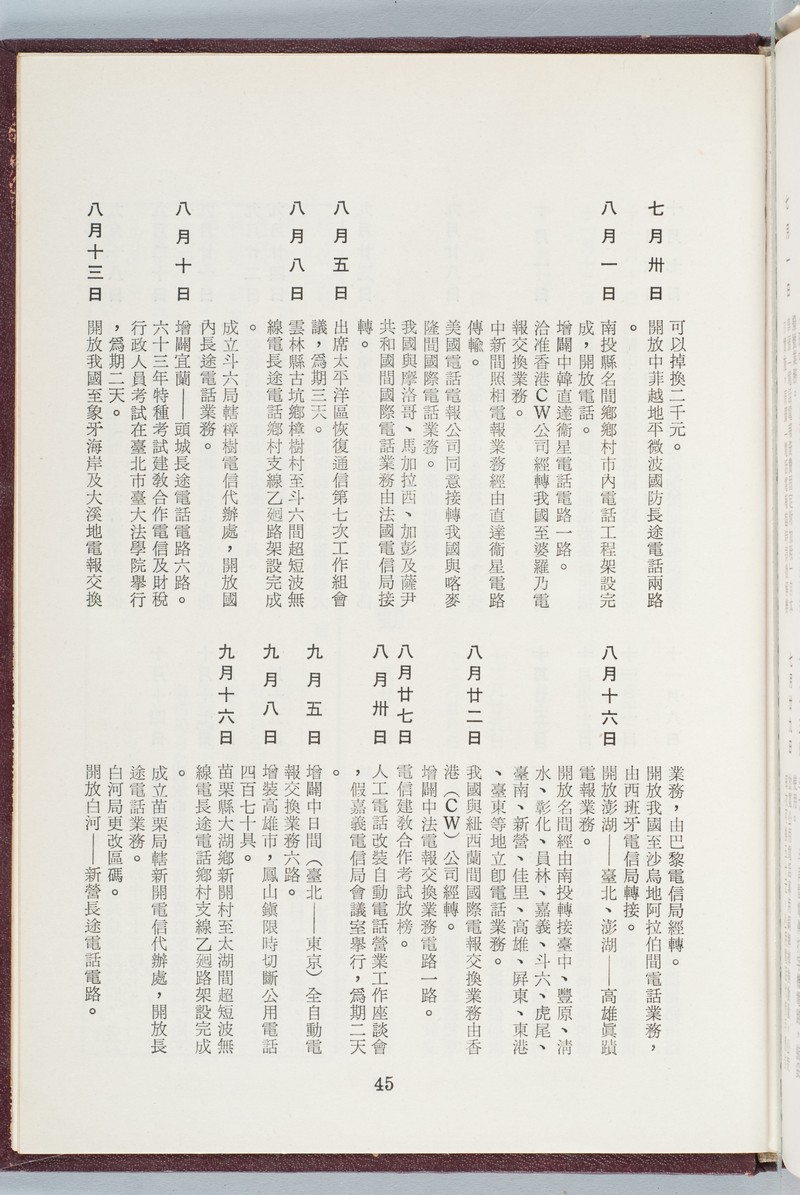 可以掉換二千元。
七月卅日
開放中菲越地平微波國防長途電話兩路
。
八月一日
南投縣名間鄉鄉村市內電話工程架設完
成，開放電話。
增闢中韓直達衞星電話電路一路。
洽准香港CW公司經轉我國至婆羅乃電
報交換業務。
中新間照相電報業務經由直達衞星電路
傳輸。
美國電話電報公司同意接轉我國與喀麥
隆間國際電話業務。
我國與摩洛哥、馬加拉西、加彭及薩尹
共和國間國際電話業務由法國電信局接
轉。
八月五日
出席太平洋區恢復通信第七次工作組會
議，爲期三天。
八月八日
雲林縣古坑鄉樟樹村至斗六間超短波無
線電長途電話鄉村支線乙廻路架設完成
。
成立斗六局轄樟樹電信代辦處，開放國
內長途電話業務。
八月十日
增闢宜蘭——頭城長途電話電路六路。
六十三年特種考試建教合作電信及財稅
行政人員考試在臺北市臺大法學院舉行
，爲期二天。
八月十三日
開放我國至象牙海岸及大溪地電報交換
業務，由巴黎電信局經轉。
開放我國至沙烏地阿拉伯間電話業務，
由西班牙電信局轉接。
八月十六日
開放澎湖——臺北、澎湖——高雄眞蹟
電報業務。
開放名間經由南投轉接臺中、豐原、淸
水、彰化、員林、嘉義、斗六、虎尾、
臺南、新營、佳里、高雄、屛東、東港
、臺東等地立卽電話業務。
八月廿二日
我國與紐西蘭間國際電報交換業務由香
港（CW）公司經轉。
增闢中法電報交換業務電路一路。
八月廿七日
電信建教合作考試放榜。
八月卅日
人工電話改裝自動電話營業工作座談會
，假嘉義電信局會議室舉行，爲期二天
。
九月五日
增闢中日間（臺北——東京）全自動電
報交換業務六路。
九月八日
增裝高雄市，鳳山鎭限時切斷公用電話
四百七十具。
九月十六日
苗栗縣大湖鄉新開村至太湖間超短波無
線電長途電話鄉村支線乙廻路架設完成
。
成立苗栗局轄新開電信代辦處，開放長
途電話業務。
白河局更改區碼。
開放白河——新營長途電話電路。
45